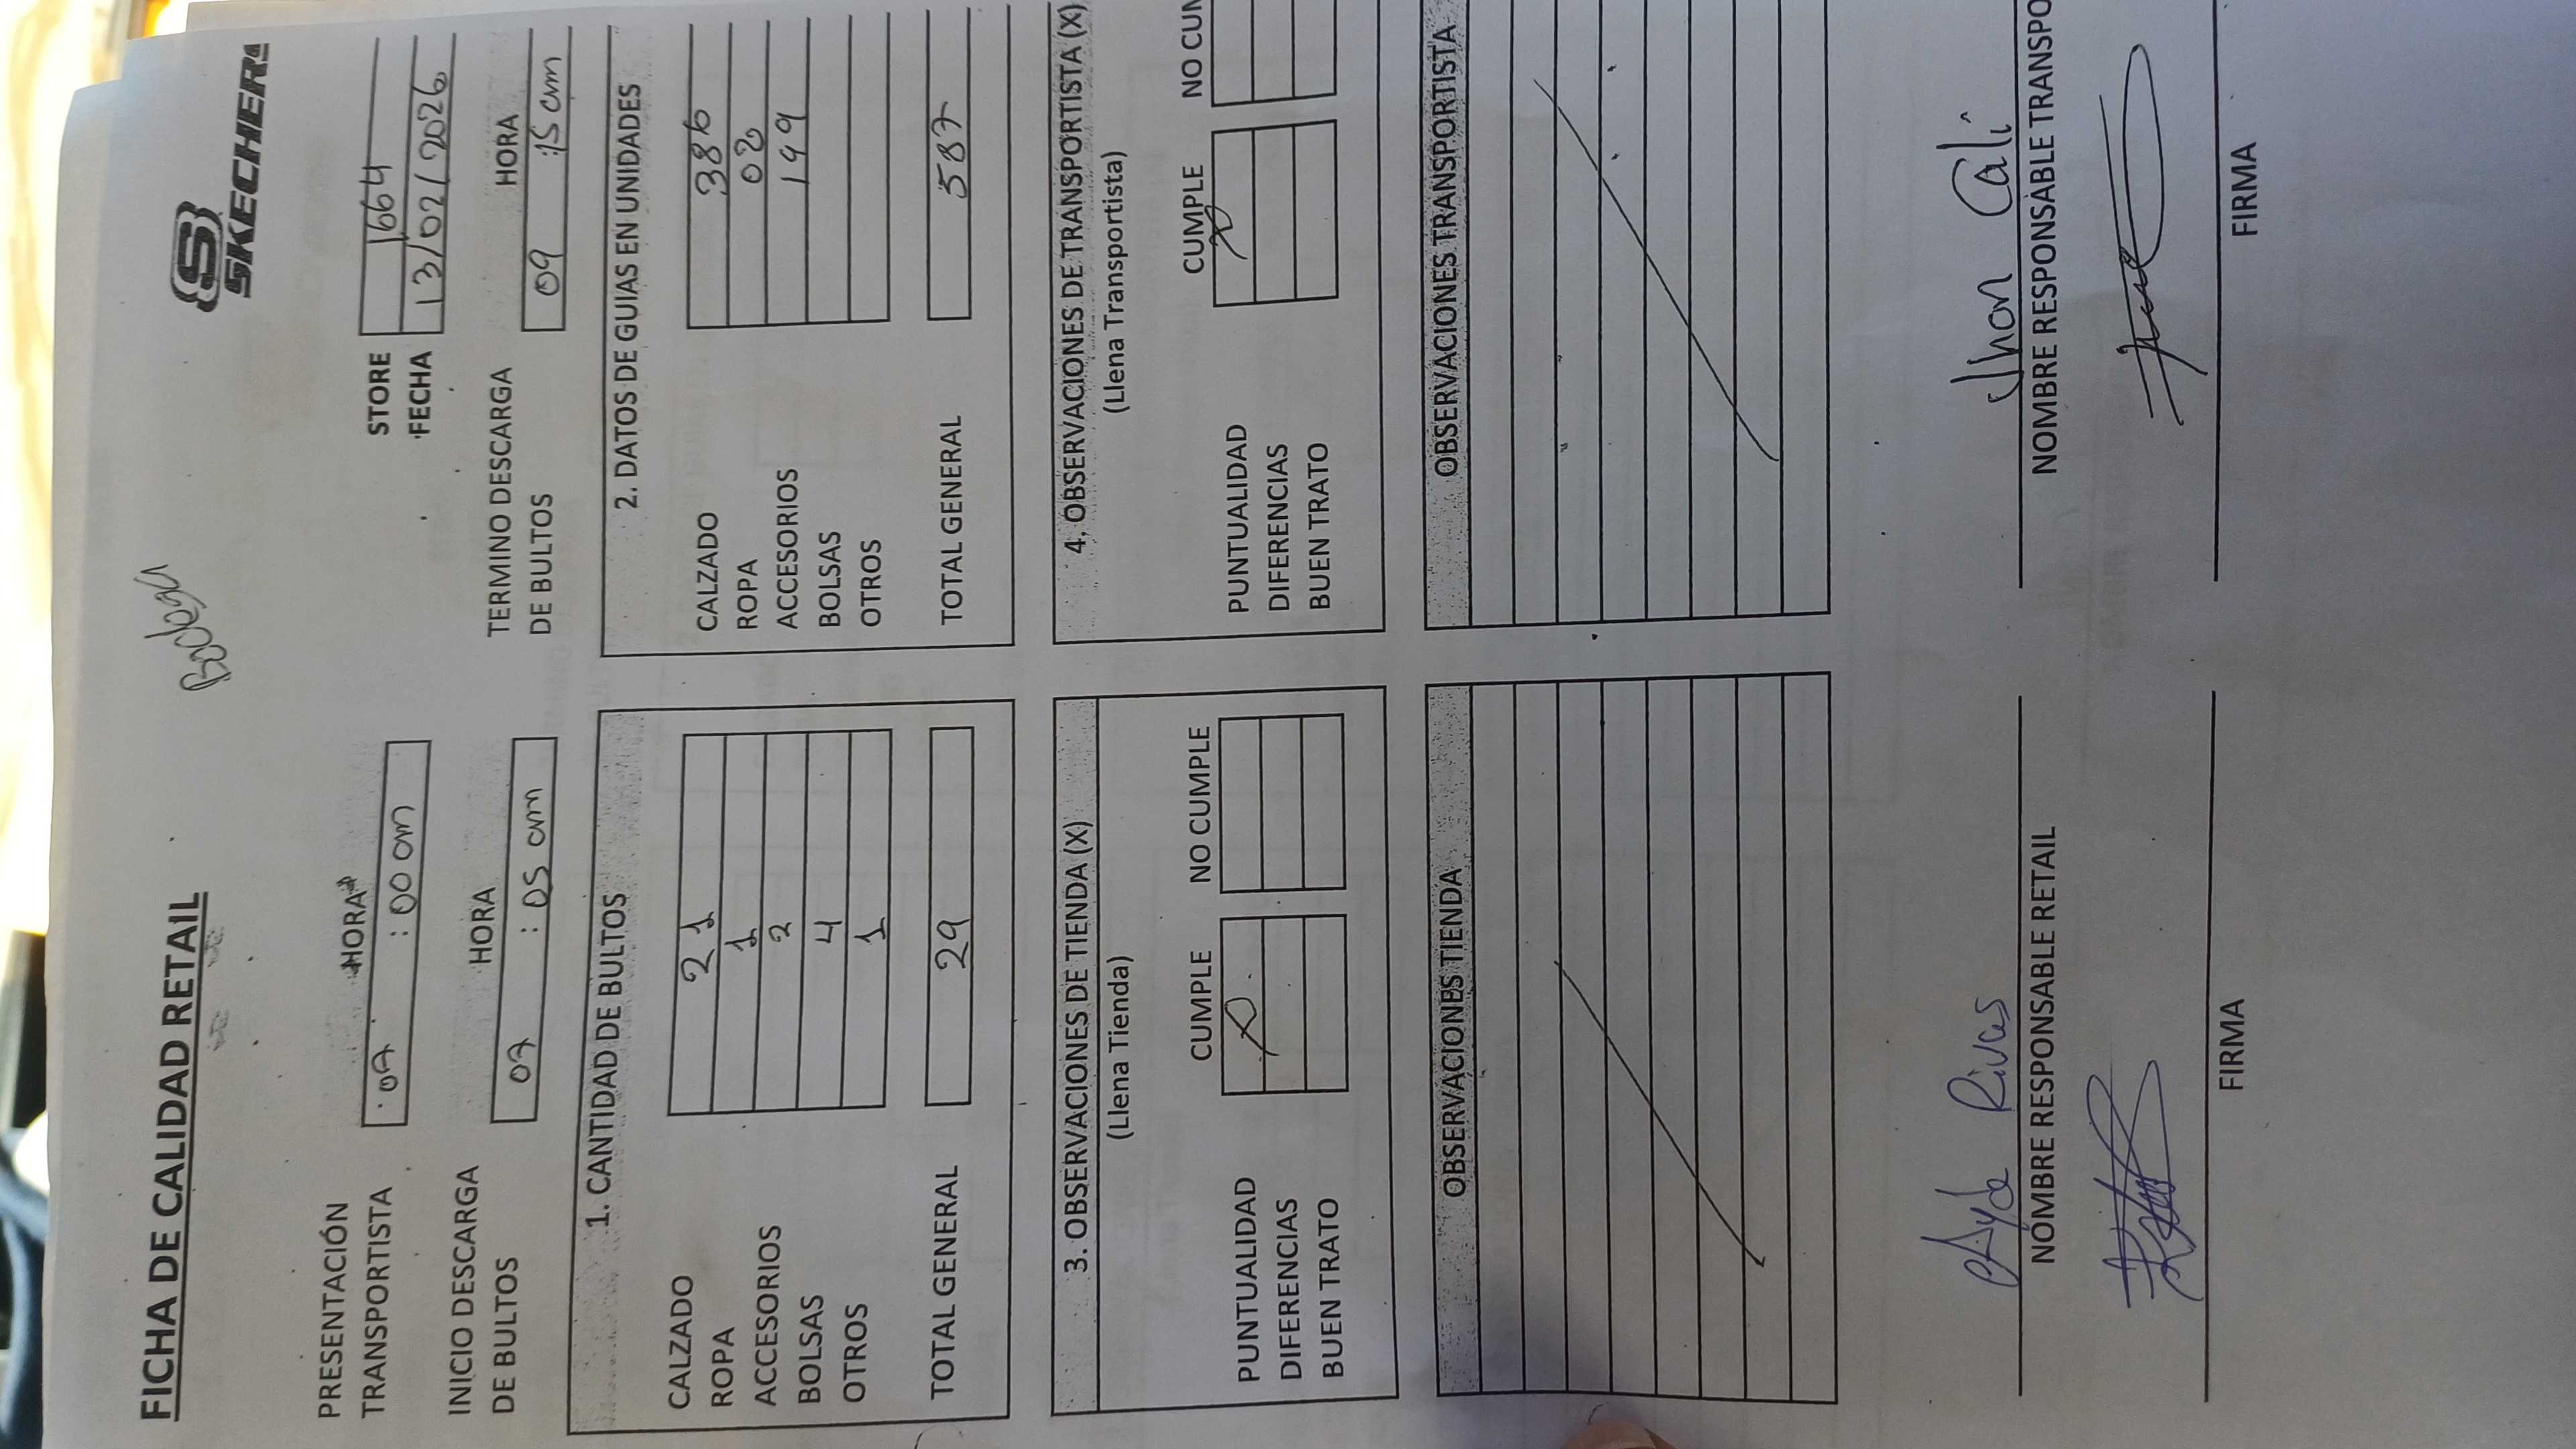 FICHA DE CALIDAD RETAIL
Bodega
SKECHERS
PRESENTACIÓN TRANSPORTISTA
HORA
07 : 00 am
STORE 1664
FECHA 13/02/2026
INICIO DESCARGA DE BULTOS
HORA
07 : 05 am
TERMINO DESCARGA DE BULTOS
HORA
09 :15 am
1. CANTIDAD DE BULTOS
CALZADO 21
ROPA 1
ACCESORIOS 2
BOLSAS 4
OTROS 1
TOTAL GENERAL 29
2. DATOS DE GUIAS EN UNIDADES
CALZADO 386
ROPA 02
ACCESORIOS 199
BOLSAS
OTROS
TOTAL GENERAL 587
3. OBSERVACIONES DE TIENDA (X)
(Llena Tienda)
CUMPLE NO CUMPLE
PUNTUALIDAD X
DIFERENCIAS
BUEN TRATO
4. OBSERVACIONES DE TRANSPORTISTA (X)
(Llena Transportista)
CUMPLE NO CUM
PUNTUALIDAD X
DIFERENCIAS
BUEN TRATO
OBSERVACIONES TIENDA
OBSERVACIONES TRANSPORTISTA
Ayde Rivas
NOMBRE RESPONSABLE RETAIL
FIRMA
Jhon Cali
NOMBRE RESPONSABLE TRANSPO
FIRMA